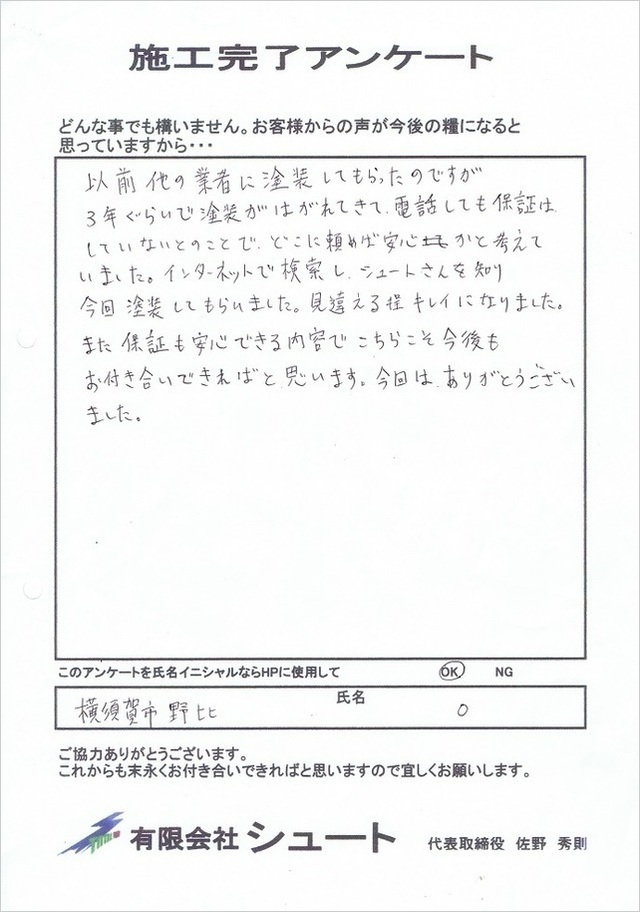 施工完了アンケート
どんな事でも構いません。お客様からの声が今後の糧になると
思っていますから・・・
以前他の業者に塗装してもらったのですが
3年ぐらいで塗装がはがれてきて、電話しても保証は
していないとのことで、どこに頼めば安心かと考えて
いました。インターネットで検索し、シュートさんを知り
今回塗装してもらいました。見違える程キレイになりました。
また保証も安心できる内容でこちらこそ今後も
お付き合いできればと思います。今回は、ありがとうござい
ました。
このアンケートを氏名イニシャルならHPに使用して OK NG
横須賀市野比 氏名 O
ご協力ありがとうございます。
これからも末永くお付き合いできればと思いますので宜しくお願いします。
有限会社シュート 代表取締役 佐野 秀則